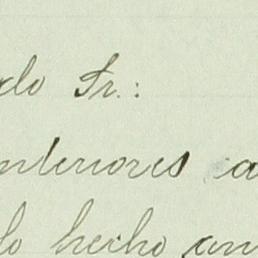 do Sr.:
nteriores a
do hecho an